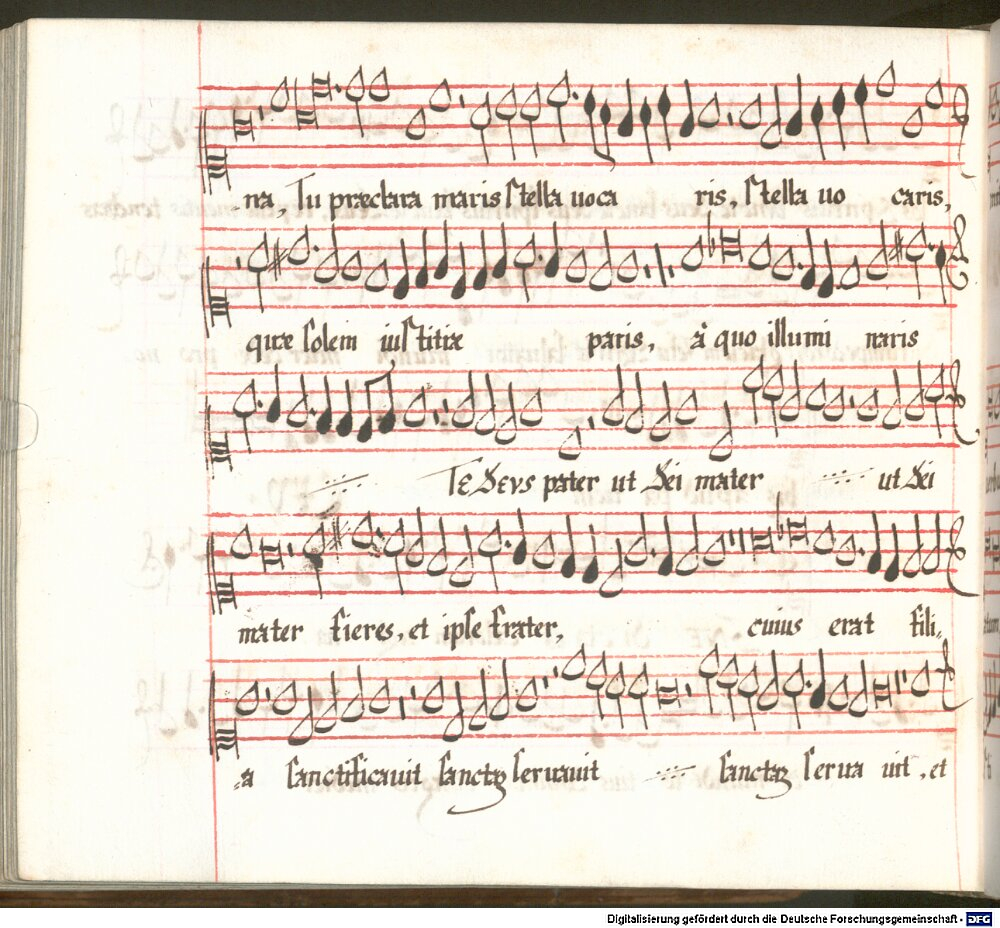 na, Tu præclara maris stella uoca ris, stella uo caris,
quæ solem iustitiæ paris, à quo illumi naris
Te Deus pater ut Dei mater ut Dei
mater fieres, et ipse frater, cuius erat fili,
a sanctificauit sanctaq seruauit sanctaq serua uit, et
Digitalisierung gefördert durch die Deutsche Forschungsgemeinschaft - DFG